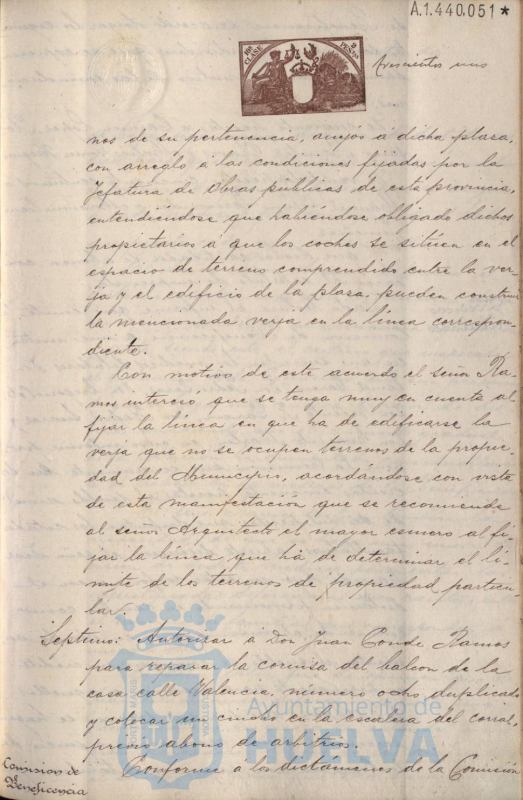 A.1.440.051*
10ª CLASE
2 PESETAS
trescientos uno
nos de su pertenencia, anejos á dicha plaza,
con arreglo á las condiciones fijadas por la
Jefatura de Obras públicas de esta provincia,
entendiéndose que habiéndose obligado dichos
propietarios á que los coches se sitúen en el
espacio de terreno comprendido entre la ver-
ja y el edificio de la plaza, pueden construir
la mencionada verja en la línea correspon-
diente.
Con motivo de este acuerdo el señor Ra-
mos interesó que se tenga muy en cuenta al
fijar la línea en que ha de edificarse la
verja que no se ocupen terrenos de la propie-
dad del Municipio, acordándose con vista
de esta manifestación que se recomiende
al señor Arquitecto el mayor esmero al fi-
jar la línea que ha de determinar el lí-
mite de los terrenos de propiedad particu-
lar.
Septimo: Autorizar á Don Juan Conde Ramos
para reparar la cornisa del balcon de la
casa calle Valencia, número ocho duplicado
y colocar un en la escalera del corral,
previo abono de arbitrios.
Comision de
Beneficencia
Conforme a los dictámenes de la Comisión
Ayuntamiento de
HUELVA